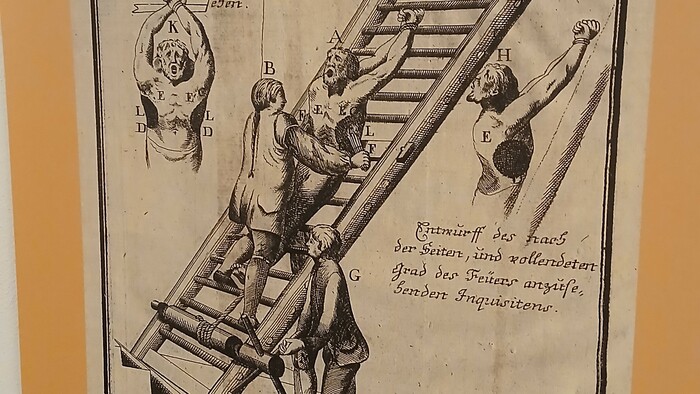 ehen.
K
A
B
H
E E
E E
E
F
L
L
L
F
D
D
E
Entwurff des nach
der Seiten, und vollendeten
Grad des Feüers anzuse-
henden Inquisitens.
G